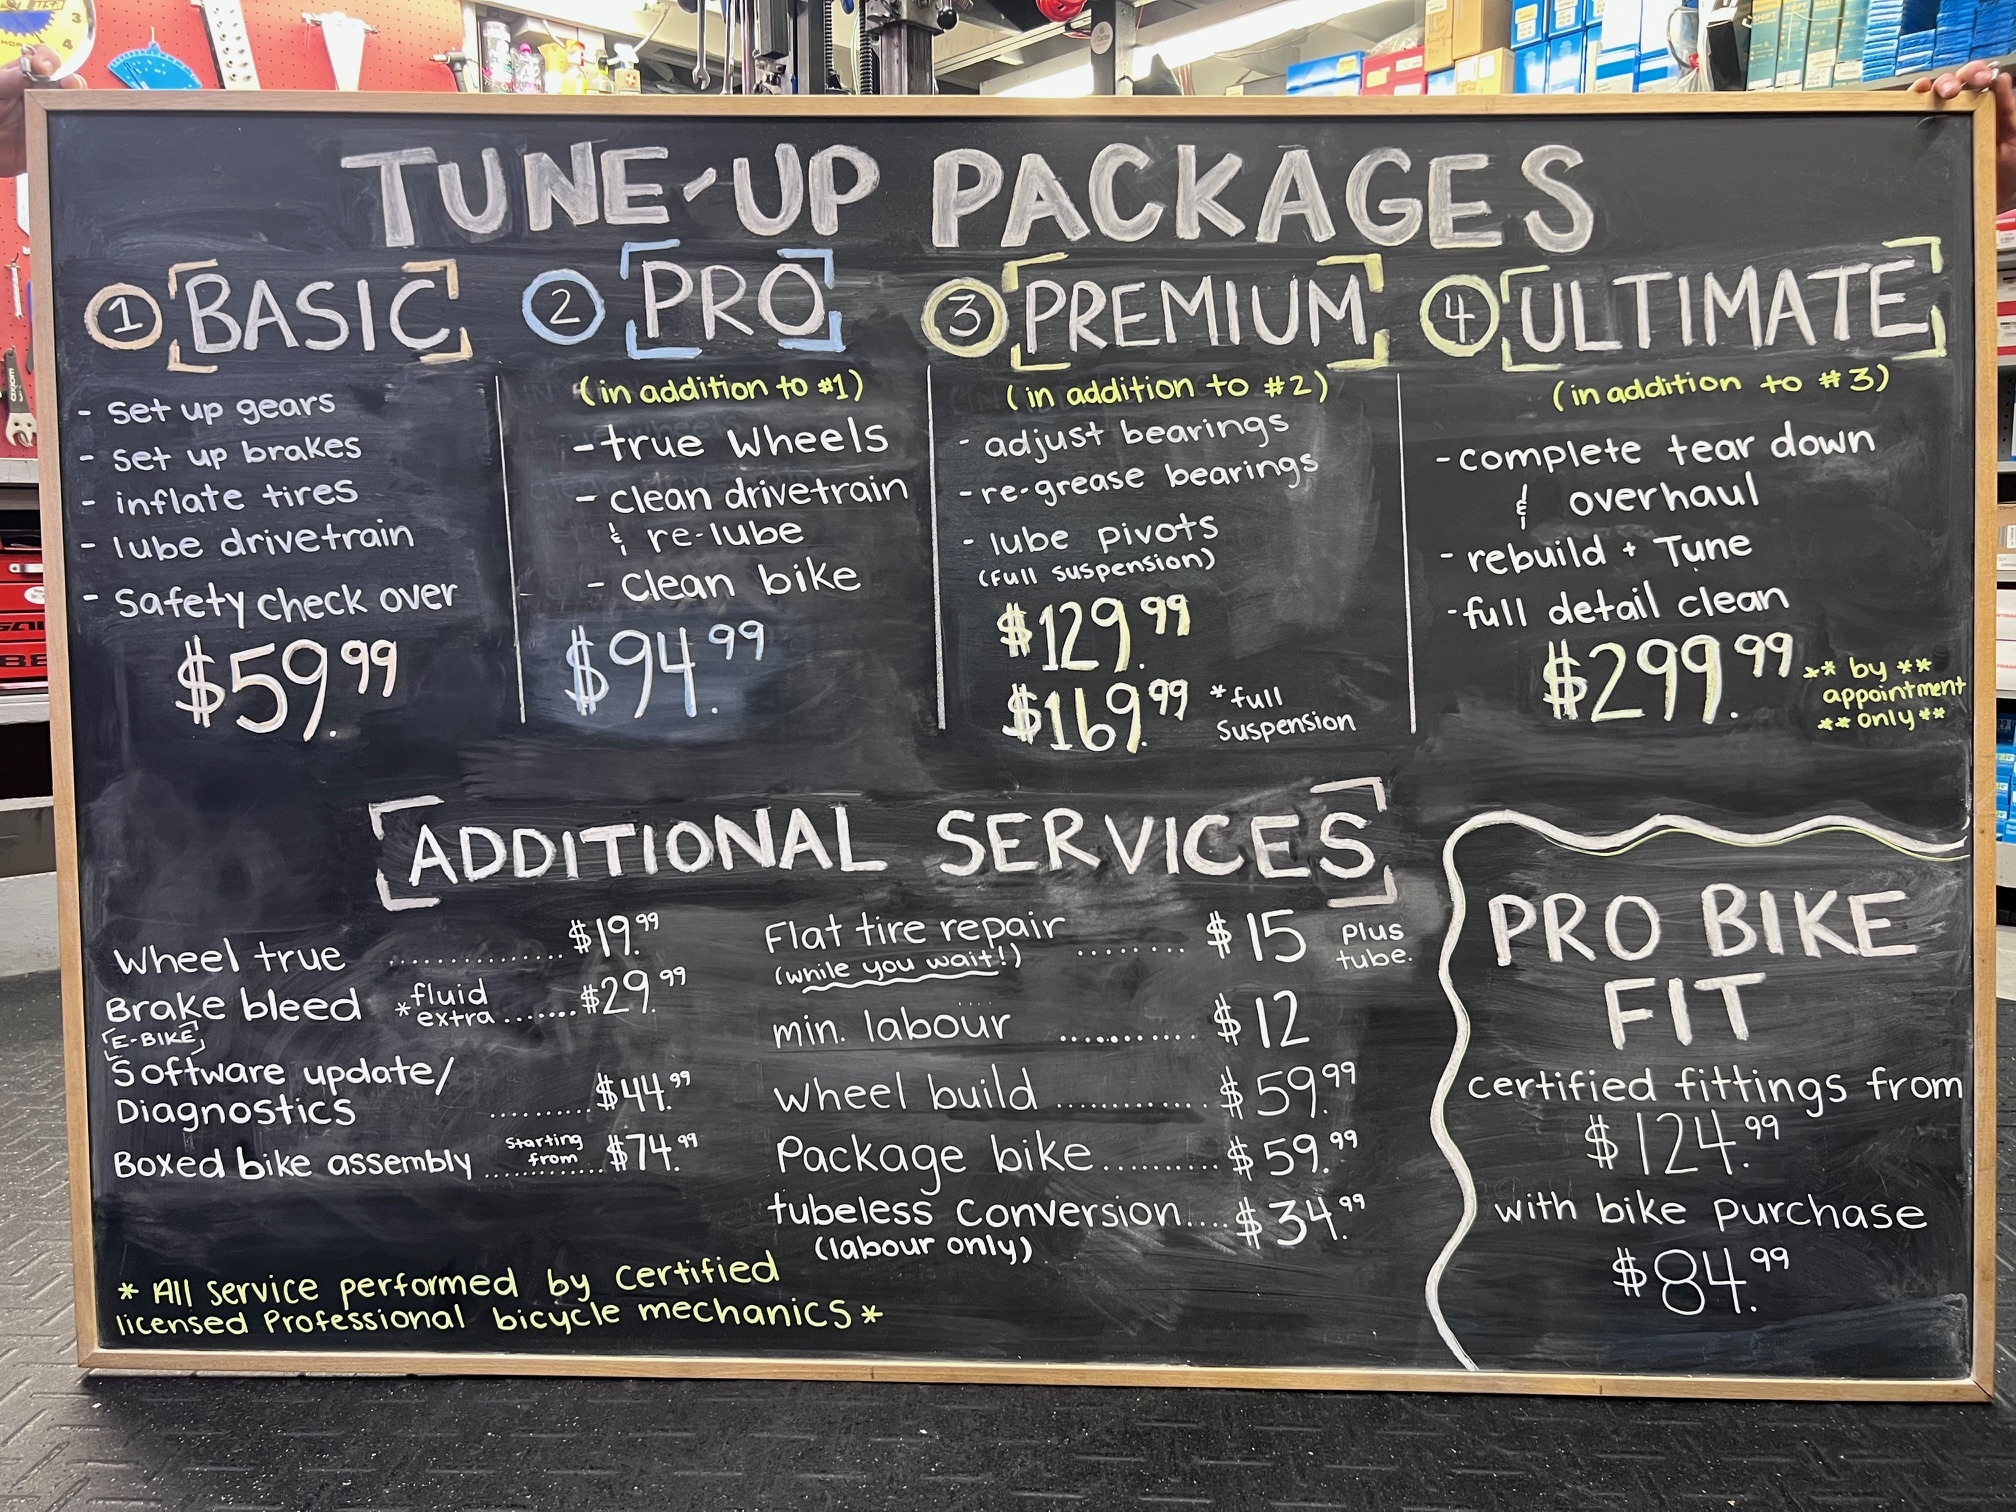 TUNE-UP PACKAGES
1 BASIC
- set up gears
- set up brakes
- inflate tires
- lube drivetrain
- Safety check over
$59.99
2 PRO
(in addition to #1)
- true wheels
- clean drivetrain
& re-lube
- clean bike
$94.99
3 PREMIUM
(in addition to #2)
- adjust bearings
- re-grease bearings
- lube pivots
(full suspension)
$129.99
$169.99 *full
suspension
4 ULTIMATE
(in addition to #3)
- complete tear down
& overhaul
- rebuild + Tune
- full detail clean
$299.99
** by **
appointment
** only **
ADDITIONAL SERVICES
Wheel true ............... $19.99
Brake bleed *fluid extra ....... $29.99
E-BIKE
Software update/
Diagnostics .......... $44.99
Boxed bike assembly starting from ............ $74.99
Flat tire repair ........ $15 plus tube.
(while you wait!)
min. labour ........... $12
wheel build ............ $59.99
Package bike.......... $59.99
tubeless conversion.... $34.99
(labour only)
* All service performed by certified
licensed Professional bicycle mechanics *
PRO BIKE
FIT
certified fittings from
$124.99
with bike purchase
$84.99